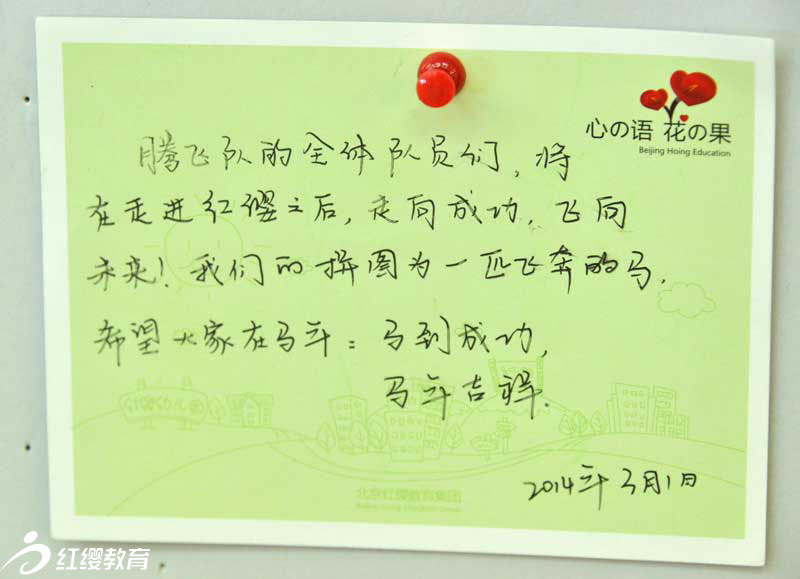 心の语 花の果
Beijing Hoing Education
腾飞队的全体队员们，将
在走进红缨之后，走向成功，飞向
未来！我们的拼图为一匹飞奔的马．
希望大家在马年：马到成功，
马年吉祥．
2014年3月1日
北京红缨教育集团
红缨教育